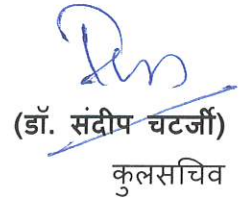 (डॉ. संदीप चटर्जी)
कुलसचिव